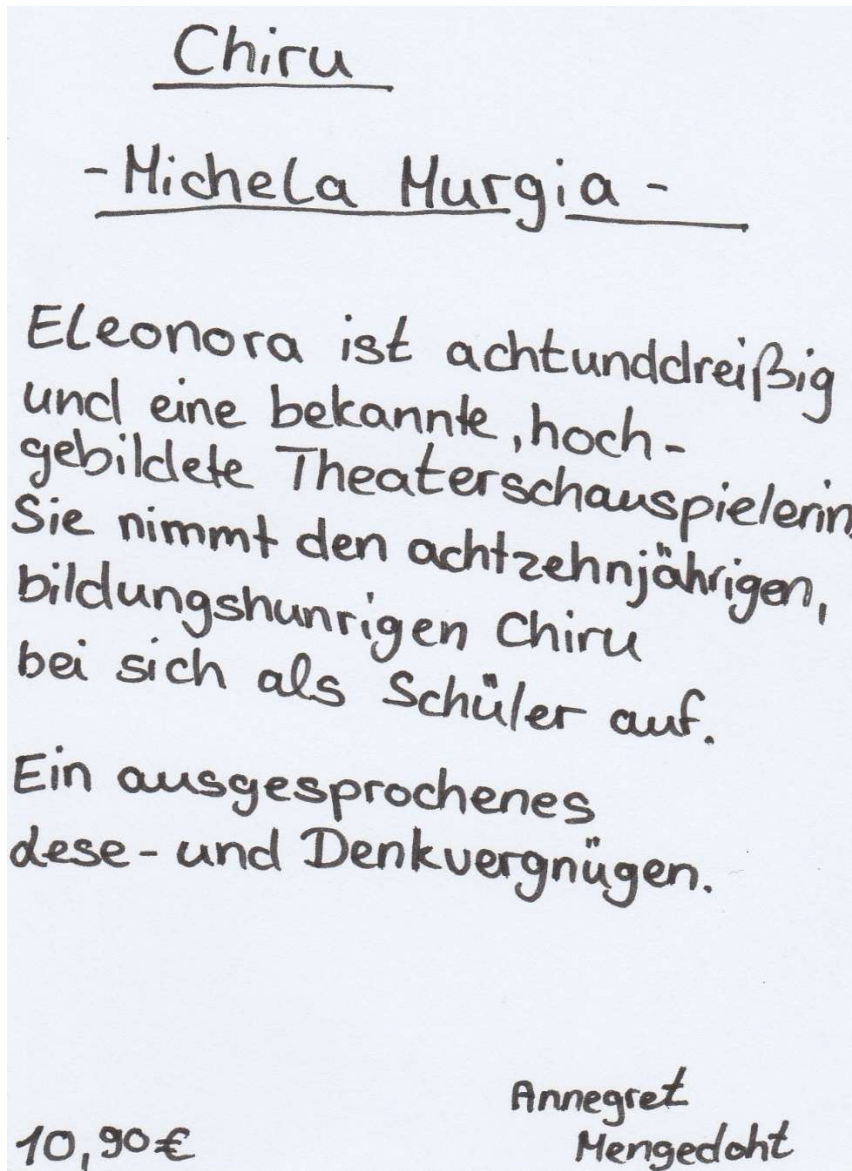 Chiru
- Michela Murgia -
Eleonora ist achtunddreißig
und eine bekannte, hoch-
gebildete Theaterschauspielerin.
Sie nimmt den achtzehnjährigen,
bildungshunrigen Chiru
bei sich als Schüler auf.
Ein ausgesprochenes
Lese- und Denkvergnügen.
Annegret
10,90€ Mengedoht